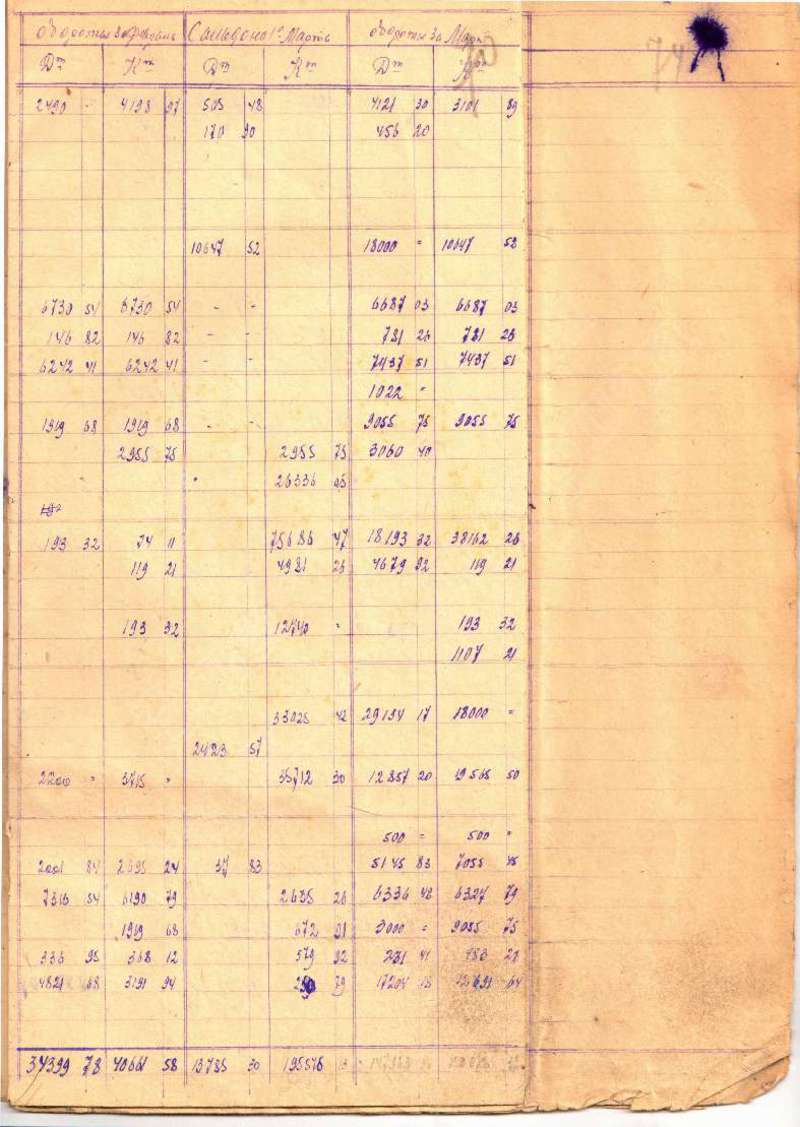 Обороты за Февраль Сальдо на 1е Марта обороты за Март
Дт Кт Дт Кт Дт Кт
2490 - 4198 97 505 48 4121 30 3101 89
170 90 456 20
10647 52 18000 = 10647 52
6730 54 6730 54 - - 6687 03 6687 03
146 82 146 82 - - 781 26 781 26
6242 41 6242 41 - - 7437 51 7437 51
1022 "
1919 68 1919 68 - - 9055 75 9055 75
2955 75 2955 75 3060 40
26336 05
193 32 74 11 75686 47 18193 32 38162 26
119 21 4981 26 4679 92 119 21
193 32 12740 = 193 32
1107 21
33025 42 29194 17 18000 =
2423 57
2200 = 3715 = 35712 30 12857 20 19565 50
500 = 500 "
2001 84 2695 24 37 83 5145 83 7055 45
7316 54 6190 79 2635 26 6336 48 6327 79
1919 68 672 91 3000 = 9055 75
336 95 368 12 579 92 231 41 183 21
4821 68 3191 94 79 17204 64
34399 78 40661 58 13785 30 195576